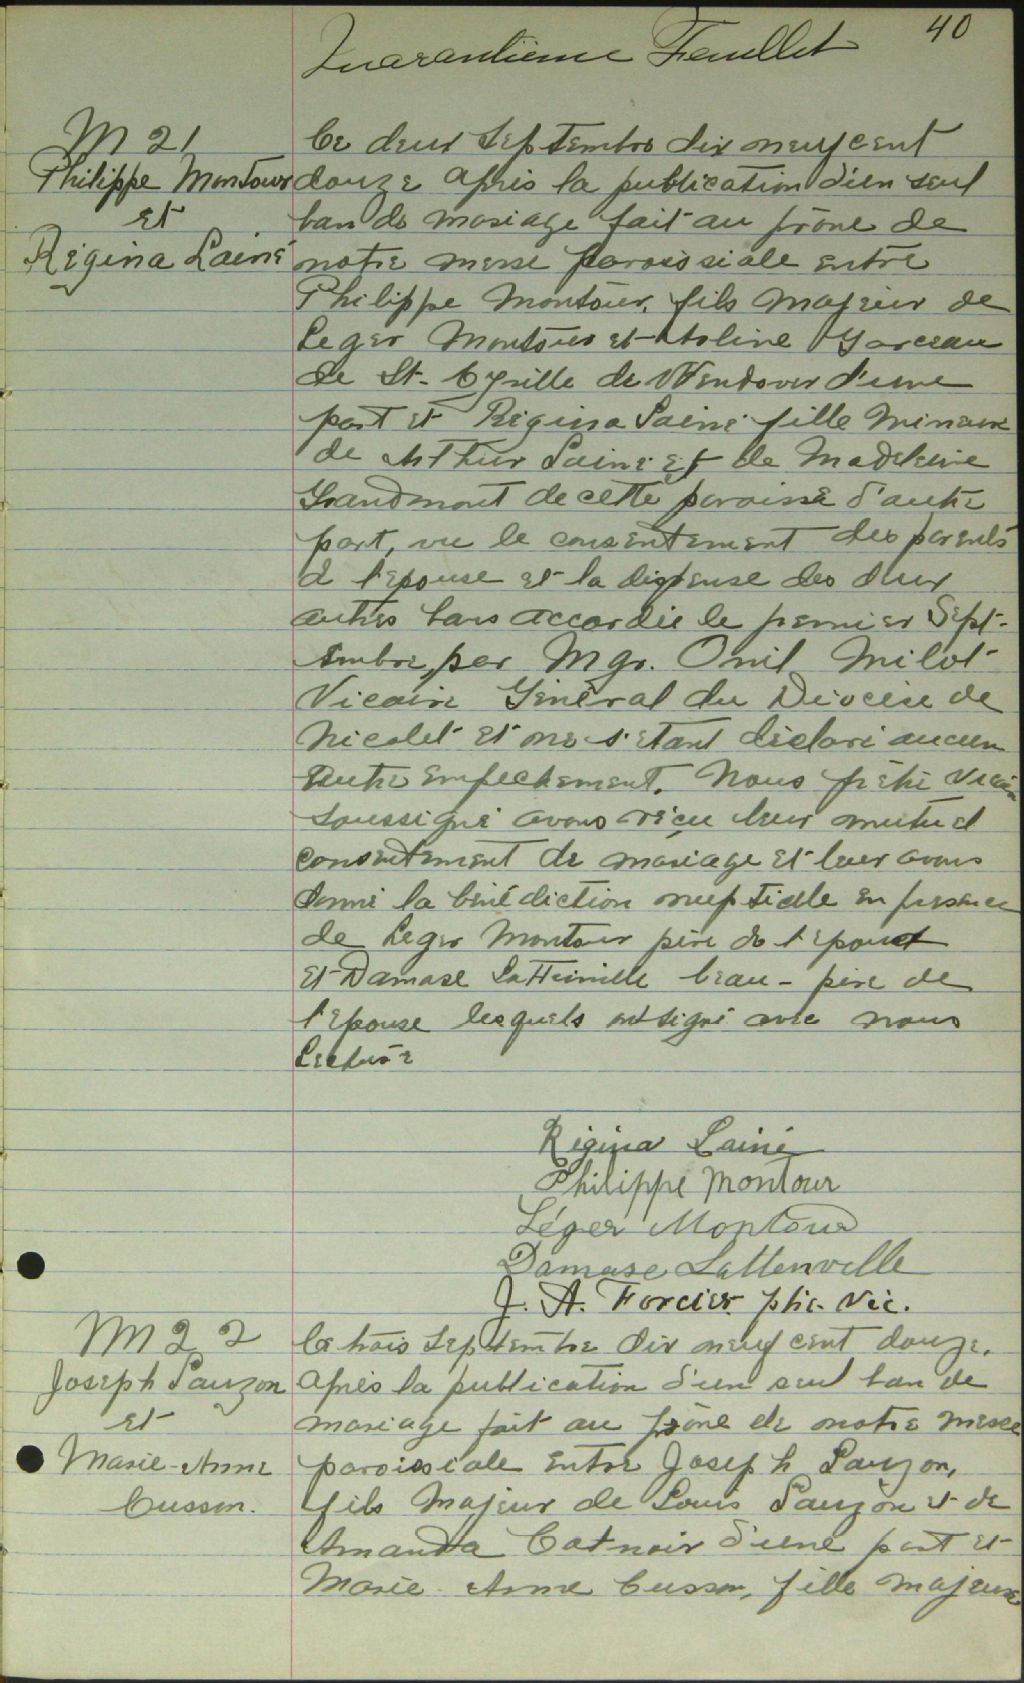 40
Quarantième Feuillet
M 21
Philippe Montour
et
Régina Lainé
Ce deux Septembre dix neuf cent
douze après la publication d'un seul
ban de mariage fait au prône de
notre messe paroissiale entre
Philippe Montour, fils majeur de
Leger Montour et Arline Garceau
de St. Cyrille de Wendover d'une
part et Régina Lainé fille mineure
de Arthur Lainé et de Madeleine
Grandmont de cette paroisse d'autre
part, vu le consentement des parents
de l'epouse et la dispense des deux
autres bans accordée le premier Sept-
embre, par Mgr. Onil Milot
Vicaire Général du Diocèse de
Nicolet et ne s'etant déclaré aucun
autre empechement. Nous prêtre vicaire
soussigné avons reçu leur mutuel
consentement de mariage et leur avons
donné la bénédiction nuptiale en presence
de Leger Montour père de l'epoux
et Damase Latteinville beau-père de
l'epouse lesquels ont signé avec nous
Lecture
Régina Lainé
Philippe Montour
Léger Montour
Damase Lattenville
J. A. Forcier ptre. vic.
M 22
Joseph Lauzon
et
Marie-Anne
Cusson.
Ce trois Septembre dix neuf cent douze.
après la publication d'un seul ban de
mariage fait au prône de notre messe
paroissiale entre Joseph Lauzon,
fils majeur de Louis Lauzon et de
Amanda Catnoir d'une part et
Marie-Anne Cusson, fille majeure